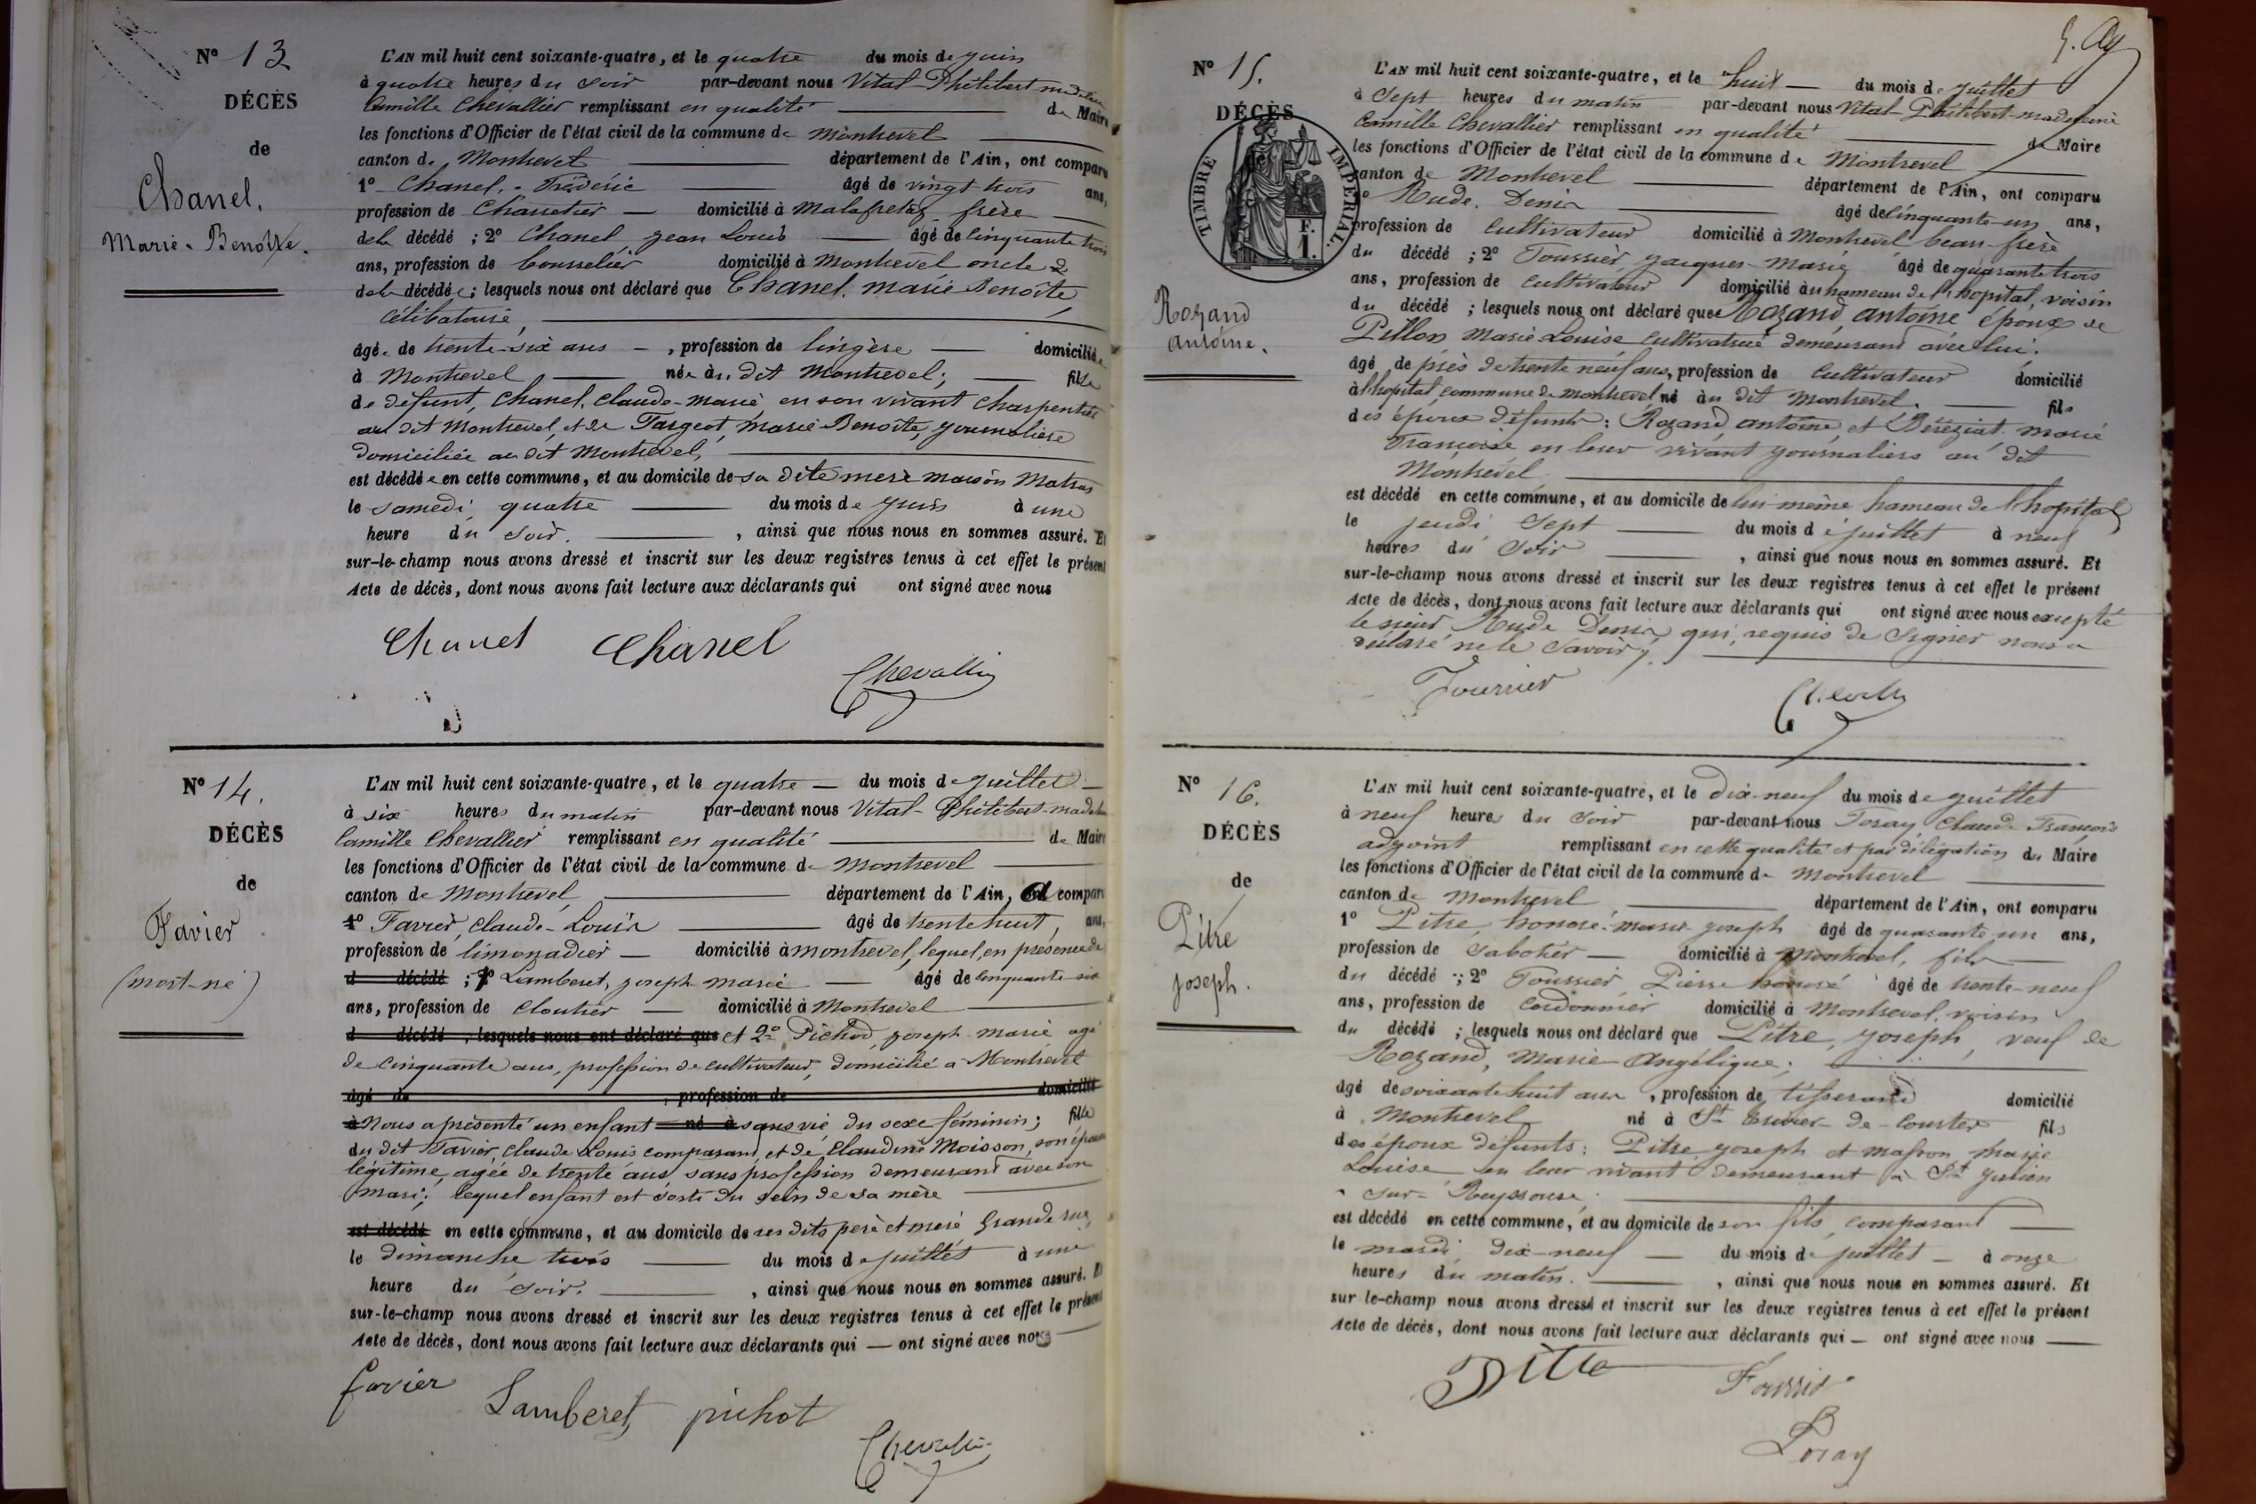 N° 13
DÉCÈS
de
Chanel,
Marie-Benoîte.
L'AN mil huit cent soixante-quatre, et le quatre du mois de juin
à quatre heures du soir par-devant nous Vital-Philibert
Camille Chevallier remplissant en qualité de Maire
les fonctions d'Officier de l'état civil de la commune de Montrevel
canton de Montrevel département de l'Ain, ont comparu
1° Chanel, Frédéric âgé de vingt-trois ans,
profession de Charretier domicilié à Malafretaz frère
de la décédé ; 2° Chanel, Jean Louis âgé de cinquante trois
ans, profession de Bourrelier domicilié à Montrevel oncle
de la décédée ; lesquels nous ont déclaré que Chanel, Marie Benoîte
Célibataire,
âgée de trente-six ans, profession de lingère domiciliée
à Montrevel née au dit Montrevel; fille
de défunt, Chanel, Claude-Marie, en son vivant Charpentier
au dit Montrevel, et de Fargeot, Marie Benoîte, journalière
domiciliée au dit Montrevel,
est décédée en cette commune, et au domicile de sa dite mère maison
le samedi quatre du mois de juin à une
heure du soir. , ainsi que nous nous en sommes assuré. Et
sur-le-champ nous avons dressé et inscrit sur les deux registres tenus à cet effet le présent
Acte de décès, dont nous avons fait lecture aux déclarants qui ont signé avec nous
Chanel Chanel
Chevallier
N° 14.
DÉCÈS
de
Favier
(mort-né)
L'AN mil huit cent soixante-quatre, et le quatre du mois de juillet
à six heures du matin par-devant nous Vital-Philibert
Camille Chevallier remplissant en qualité de Maire
les fonctions d'Officier de l'état civil de la commune de Montrevel
canton de Montrevel, département de l'Ain, a comparu
1° Favier, Claude-Louis âgé de trente huit, ans,
profession de limonadier domicilié à Montrevel, lequel, en présence de
d décédé ; 1° Lamberet, Joseph Marie âgé de cinquante-six
ans, profession de cloutier domicilié à Montrevel
d décédé ; lesquels nous ont déclaré que et 2° Pichod, Joseph Marie agé
de cinquante ans, profession de cultivateur, domicilié à Montrevel
âgé de , profession de domicilié
à Nous a présenté un enfant né à sans vie du sexe féminin; fille
du dit Favier, Claude Louis comparant, et de Claudine Moisson, son épouse
légitime, agée de trente ans, sans profession demeurant avec son
mari; lequel enfant est sorti du sein de sa mère
est décédé en cette commune, et au domicile de ses dits père et mère Grande rue,
le dimanche trois du mois de juillet à une
heure du soir. , ainsi que nous nous en sommes assuré. Et
sur-le-champ nous avons dressé et inscrit sur les deux registres tenus à cet effet le présent
Acte de décès, dont nous avons fait lecture aux déclarants qui ont signé avec nous
favier Lamberet pichot
Chevallier
N° 15.
DÉCÈS
TIMBRE IMPÉRIAL.
F. 1.
Rozand
Antoine.
L'AN mil huit cent soixante-quatre, et le huit du mois de juillet
à sept heures du matin par-devant nous Vital-Philibert
Camille Chevallier remplissant en qualité de Maire
les fonctions d'Officier de l'état civil de la commune de Montrevel
canton de Montrevel département de l'Ain, ont comparu
Rude, Denis âgé de cinquante-un ans,
profession de Cultivateur domicilié à Montrevel beau-frère
du décédé ; 2° Foussier, Jacques-Marie âgé de quarante trois
ans, profession de cultivateur domicilié au hameau de l'hopital, voisin
du décédé ; lesquels nous ont déclaré que Rozand, Antoine époux de
Pillon Marie Louise cultivatrice demeurant avec lui.
âgé de près de trente neuf ans, profession de Cultivateur domicilié
à l'hopital commune de Montrevel né au dit Montrevel. fils
des époux défunts: Rozand, Antoine, et Béréziat Marie
Françoise en leur vivant journaliers au dit
Montrevel
est décédé en cette commune, et au domicile de lui-même hameau de l'hopital
le jeudi sept du mois de juillet à neuf
heures du soir , ainsi que nous nous en sommes assuré. Et
sur-le-champ nous avons dressé et inscrit sur les deux registres tenus à cet effet le présent
Acte de décès, dont nous avons fait lecture aux déclarants qui ont signé avec nous excepté
le sieur Rude Denis qui, requis de signer nous a
déclaré ne le savoir.
N° 16.
DÉCÈS
de
Pitre
Joseph.
L'AN mil huit cent soixante-quatre, et le dix-neuf du mois de juillet
à neuf heures du soir par-devant nous Foray, Claude François
adjoint remplissant en cette qualité et par délégation du Maire
les fonctions d'Officier de l'état civil de la commune de Montrevel
canton de Montrevel département de l'Ain, ont comparu
1° Pitre, honoré-Marie Joseph âgé de quarante un ans,
profession de sabotier domicilié à Montrevel, fils
du décédé ; 2° Foussier, Pierre honoré âgé de trente-neuf
ans, profession de cordonnier domicilié à Montrevel, voisin
du décédé ; lesquels nous ont déclaré que Pitre, Joseph, veuf de
Rozand, Marie Angélique;
âgé de soixante huit ans, profession de tisserand domicilié
à Montrevel né à St Trivier-de-Courtes fils
des époux défunts: Pitre Joseph et Masson Marie
Louise en leur vivant demeurant à St Julien
sur-Reyssouze.
est décédé en cette commune, et au domicile de son fils comparant
le mardi dix-neuf du mois de juillet à onze
heures du matin. , ainsi que nous nous en sommes assuré. Et
sur le-champ nous avons dressé et inscrit sur les deux registres tenus à cet effet le présent
Acte de décès, dont nous avons fait lecture aux déclarants qui ont signé avec nous
Pitre